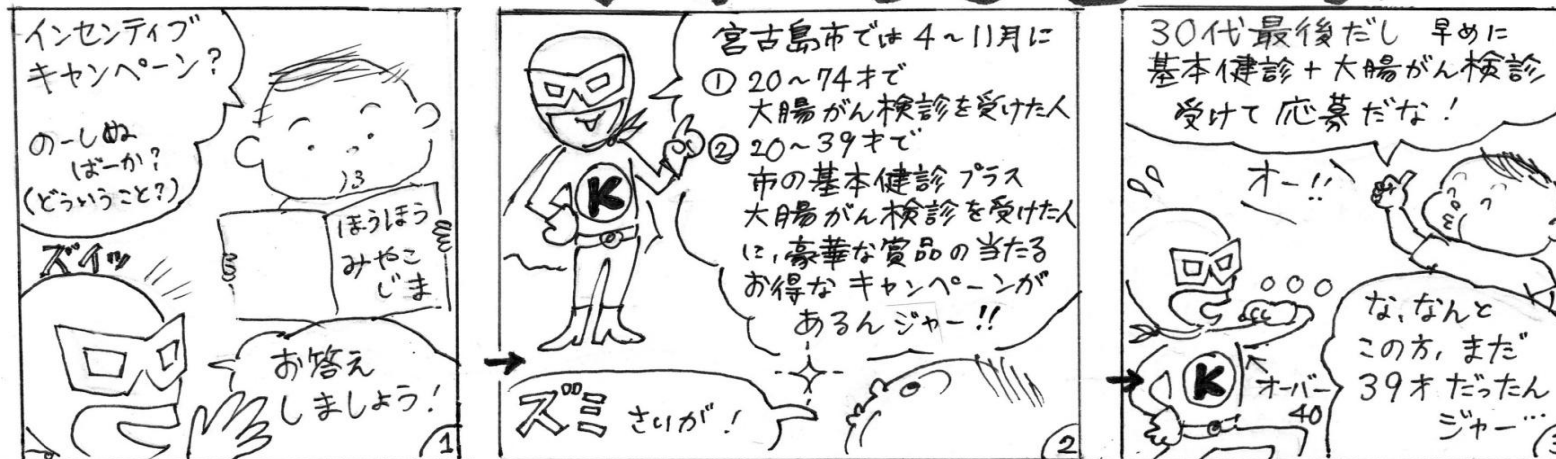 インセンティブ
キャンペーン?
のーしぬ
ばーか?
(どういうこと?)
ほうほう
みやこ
じま
ズイッ
お答え
しましょう!
1
宮古島市では4〜11月に
① 20〜74才で
大腸がん検診を受けた人
② 20〜39才で
市の基本健診プラス
大腸がん検診を受けた人
に、豪華な賞品の当たる
お得なキャンペーンが
あるんジャー!!
K
ズミ さいが!
2
30代最後だし 早めに
基本健診+大腸がん検診
受けて応募だな!
オー!!
な、なんと
この方、まだ
39才だったん
ジャー…
K
オーバー
40
3